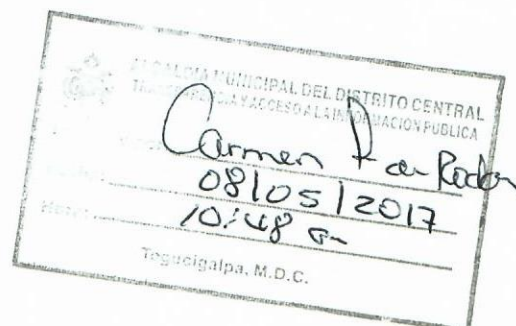 ALCALDIA MUNICIPAL DEL DISTRITO CENTRAL
TRANSPARENCIA Y ACCESO A LA INFORMACION PUBLICA
Carmen
08/05/2017
Hora:
10:48
Tegucigalpa, M.D.C.